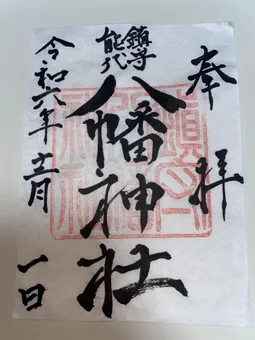 奉拝
鎮守
能代
八幡神社
令和六年十二月一日